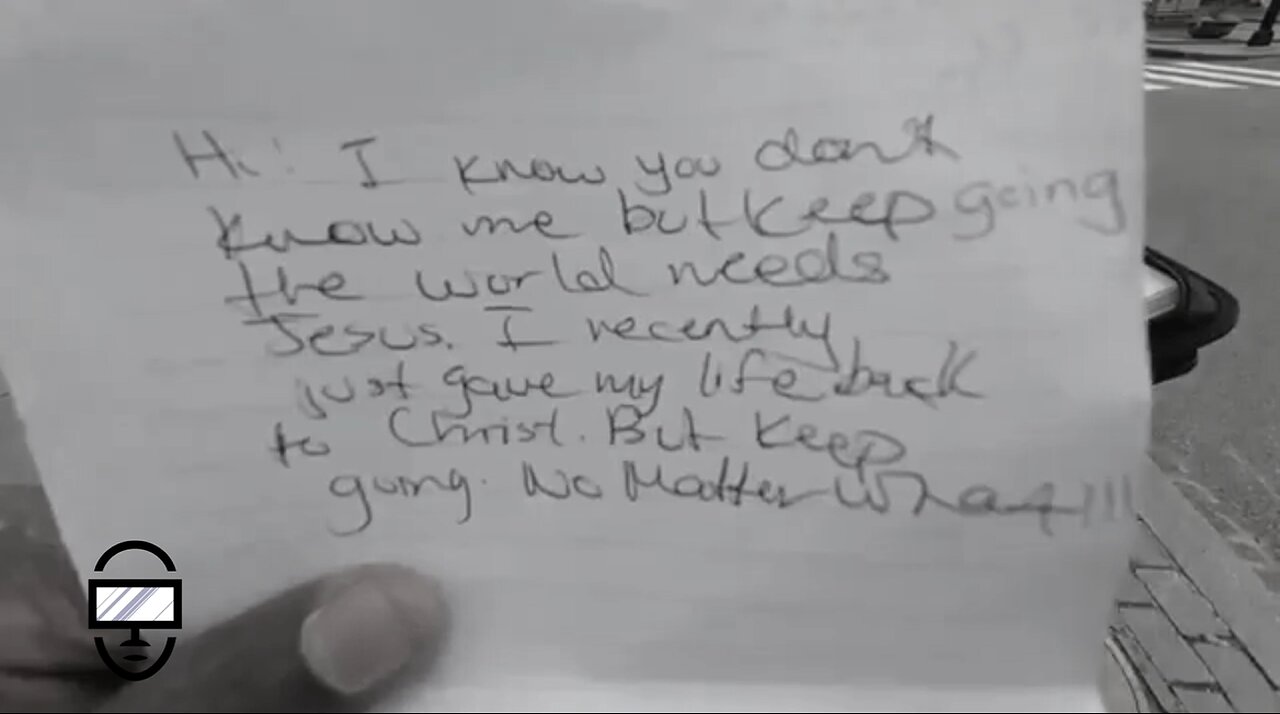 Hi! I know you don't
know me but keep going
the world needs
Jesus. I recently
just gave my life back
to Christ. But keep
going. No Matter What!!!